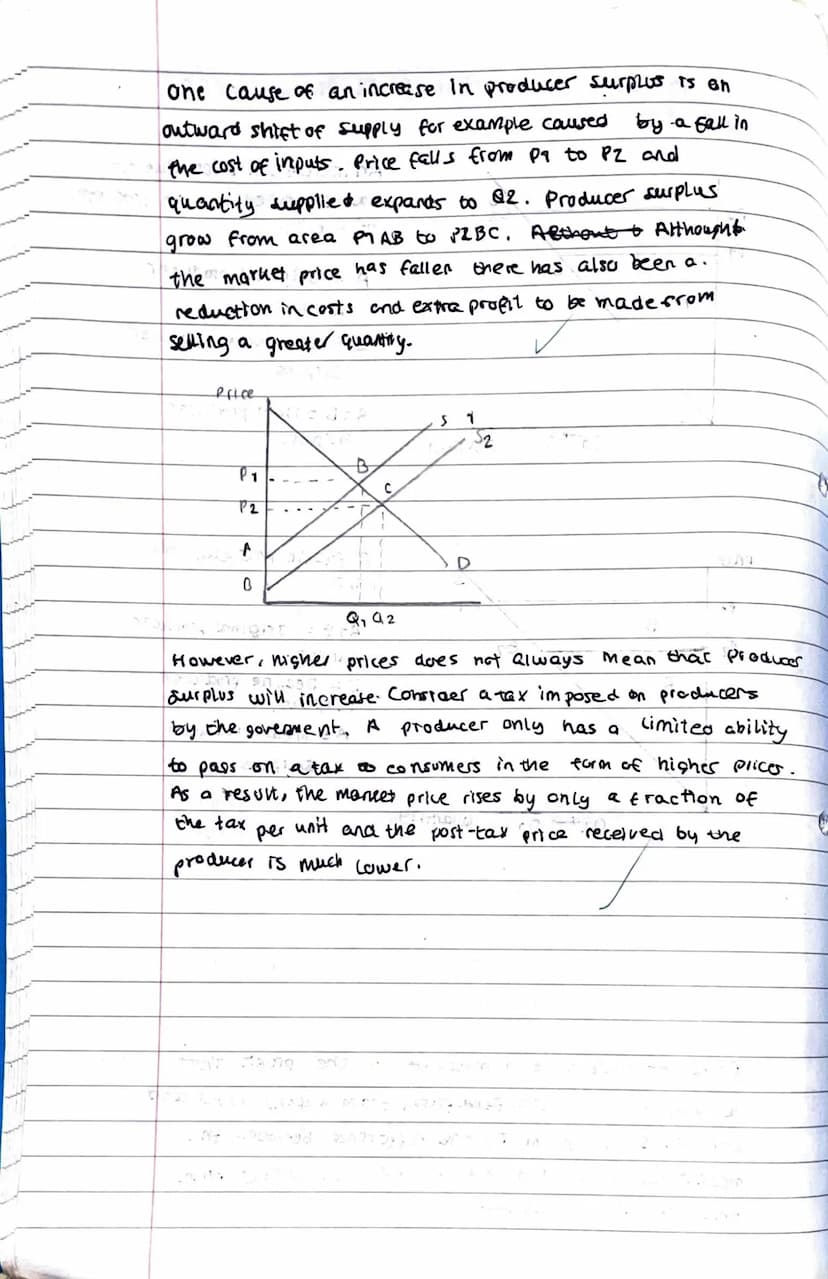 one cause of an increase In producer surplus is an
outward shift of supply for example caused by a fall in
the cost of inputs. Price falls from P1 to P2 and
quantity supplied expands to Q2. Producer surplus
grow from area P1 AB to P2BC. Although
the market price has fallen there has also been a.
reduction in costs and extra profit to be made from
selling a greater quantity.
Price
S 1
S2
B
P1
C
P2
A
D
B
Q1 Q2
However, higher prices does not always mean that Producer
surplus will increase. Consider a tax imposed on producers
by the goverment. A producer only has a limited ability
to pass on a tax to consumers in the form of higher prices.
As a result, the market price rises by only a fraction of
the tax per unit and the post-tax price received by the
producer is much lower.